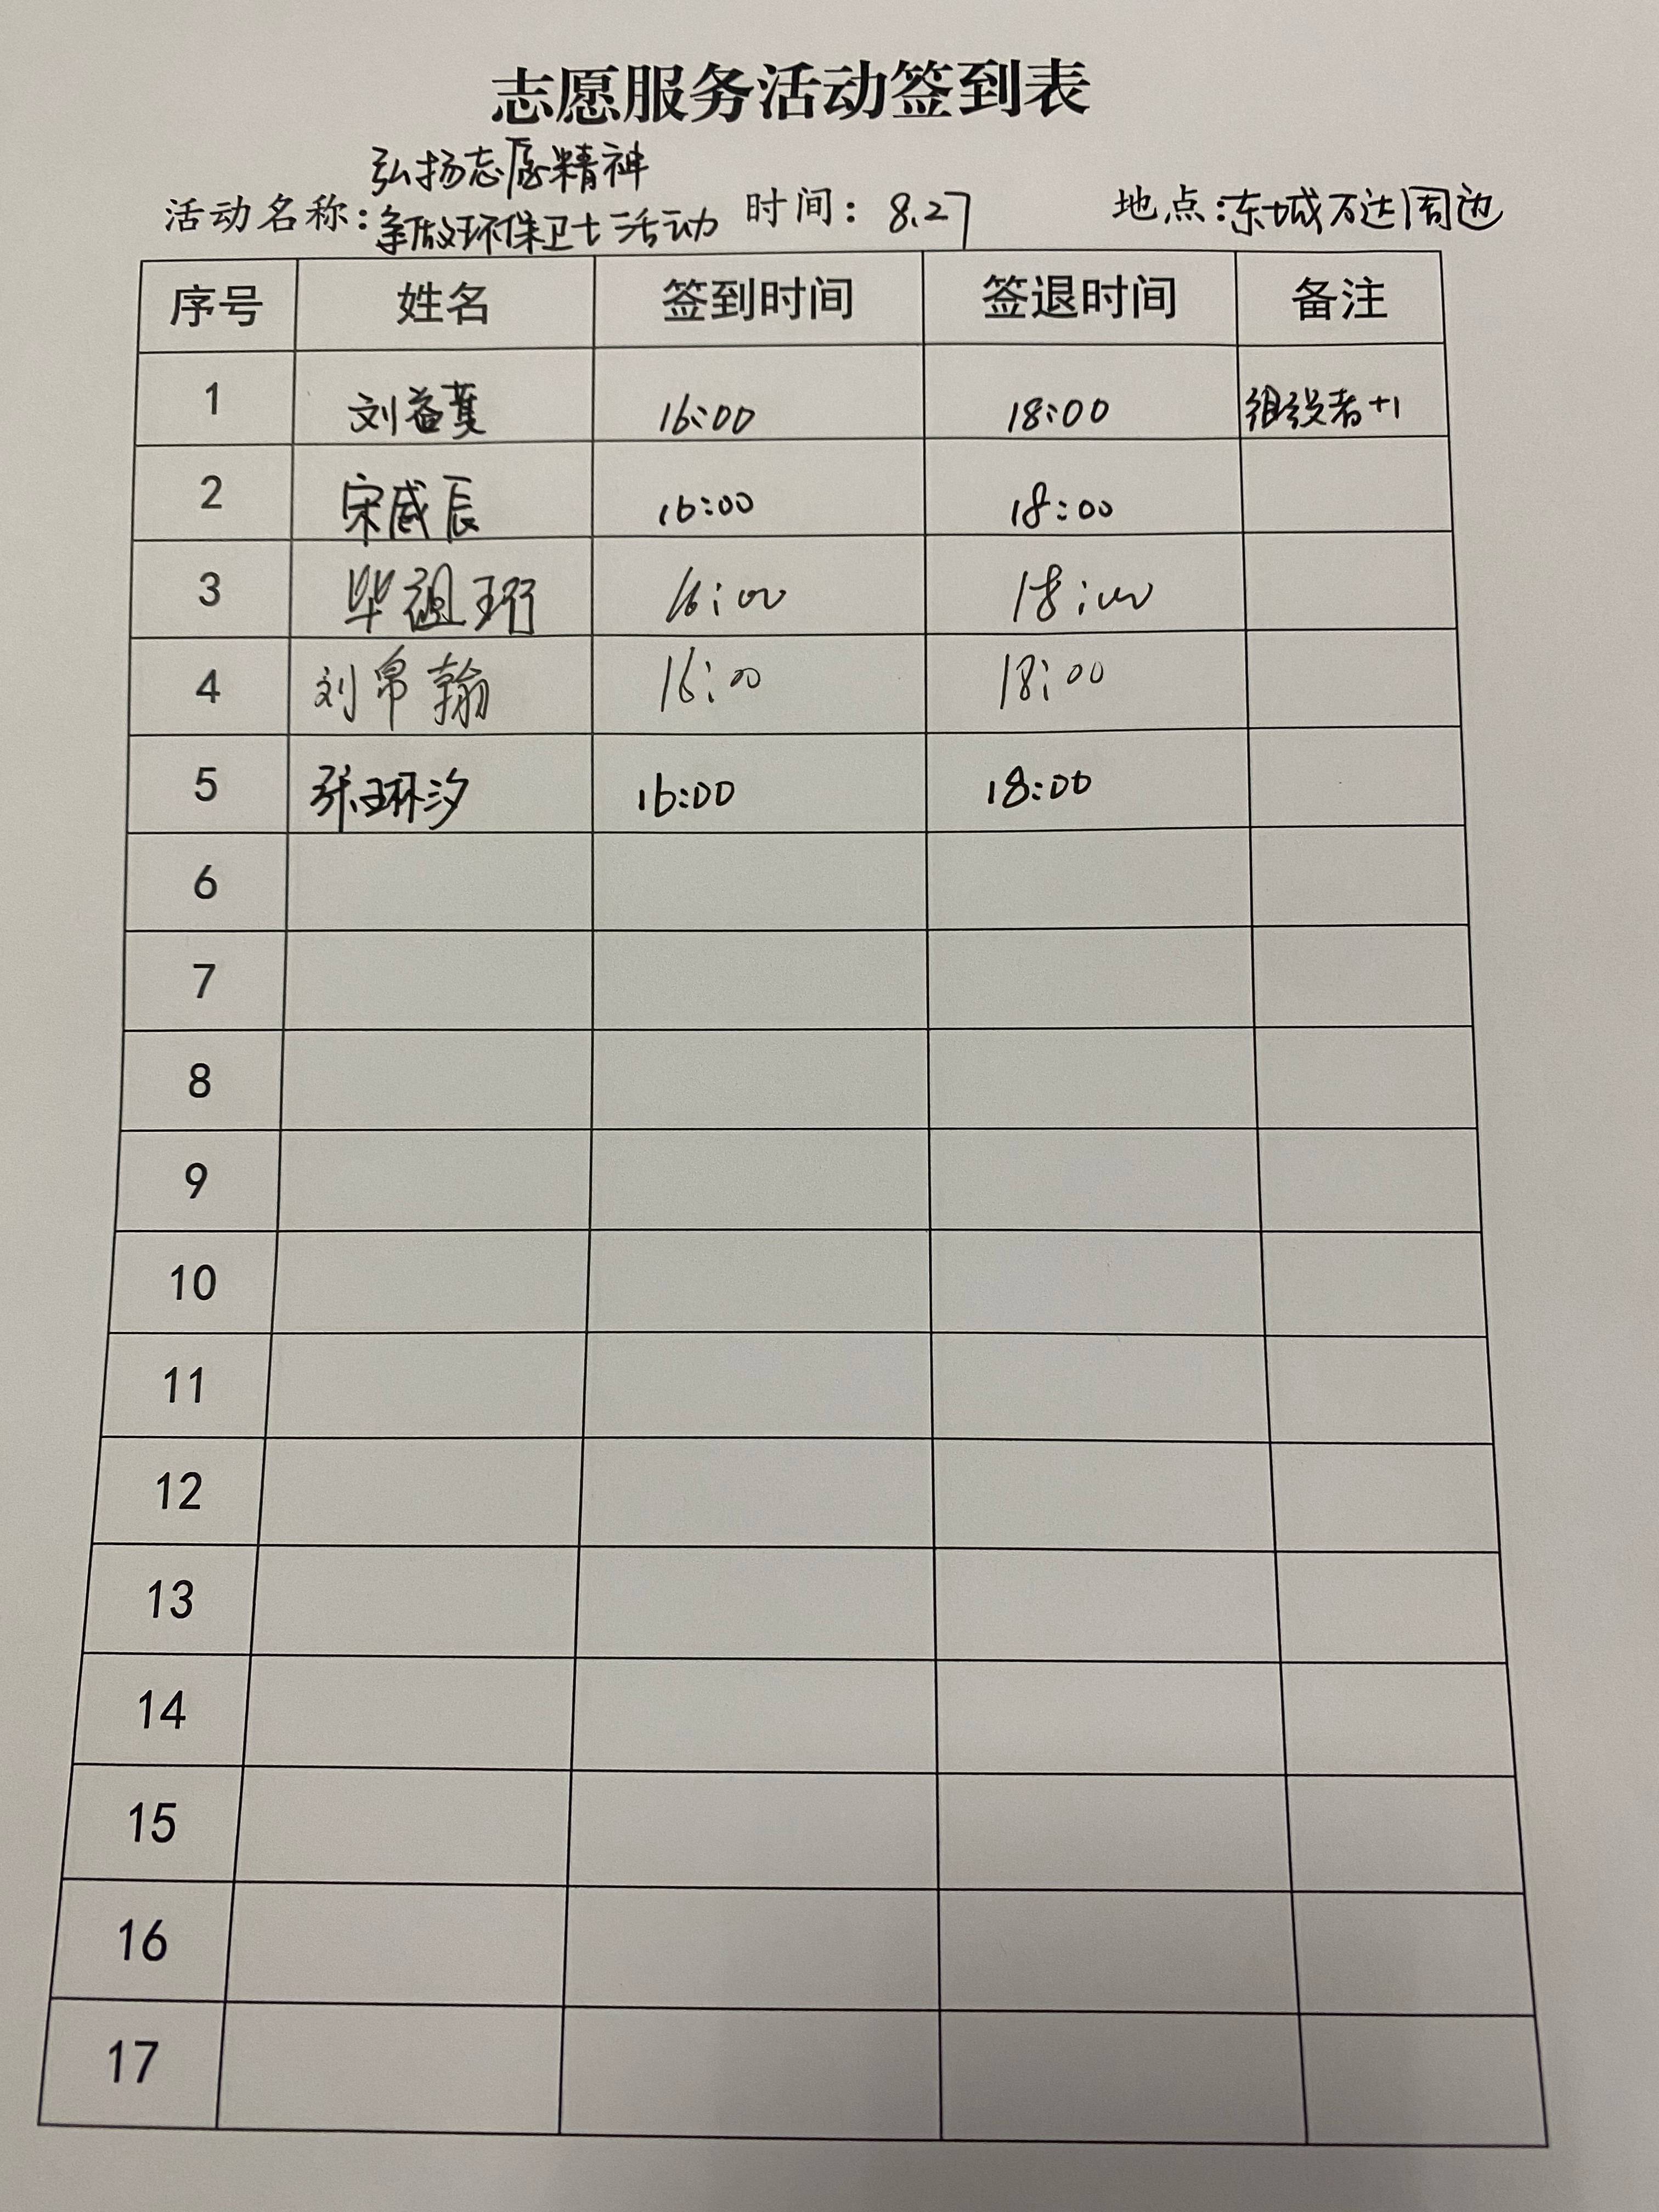 志愿服务活动签到表
弘扬志愿精神
活动名称:争做环保卫士活动 时间: 8.27 地点:东城万达周边
序号 姓名 签到时间 签退时间 备注
1 刘益 16:00 18:00 组织者+1
2 宋威辰 16:00 18:00
3 毕祖珩 16:00 18:00
4 刘帛翰 16:00 18:00
5 张琳汐 16:00 18:00
6
7
8
9
10
11
12
13
14
15
16
17